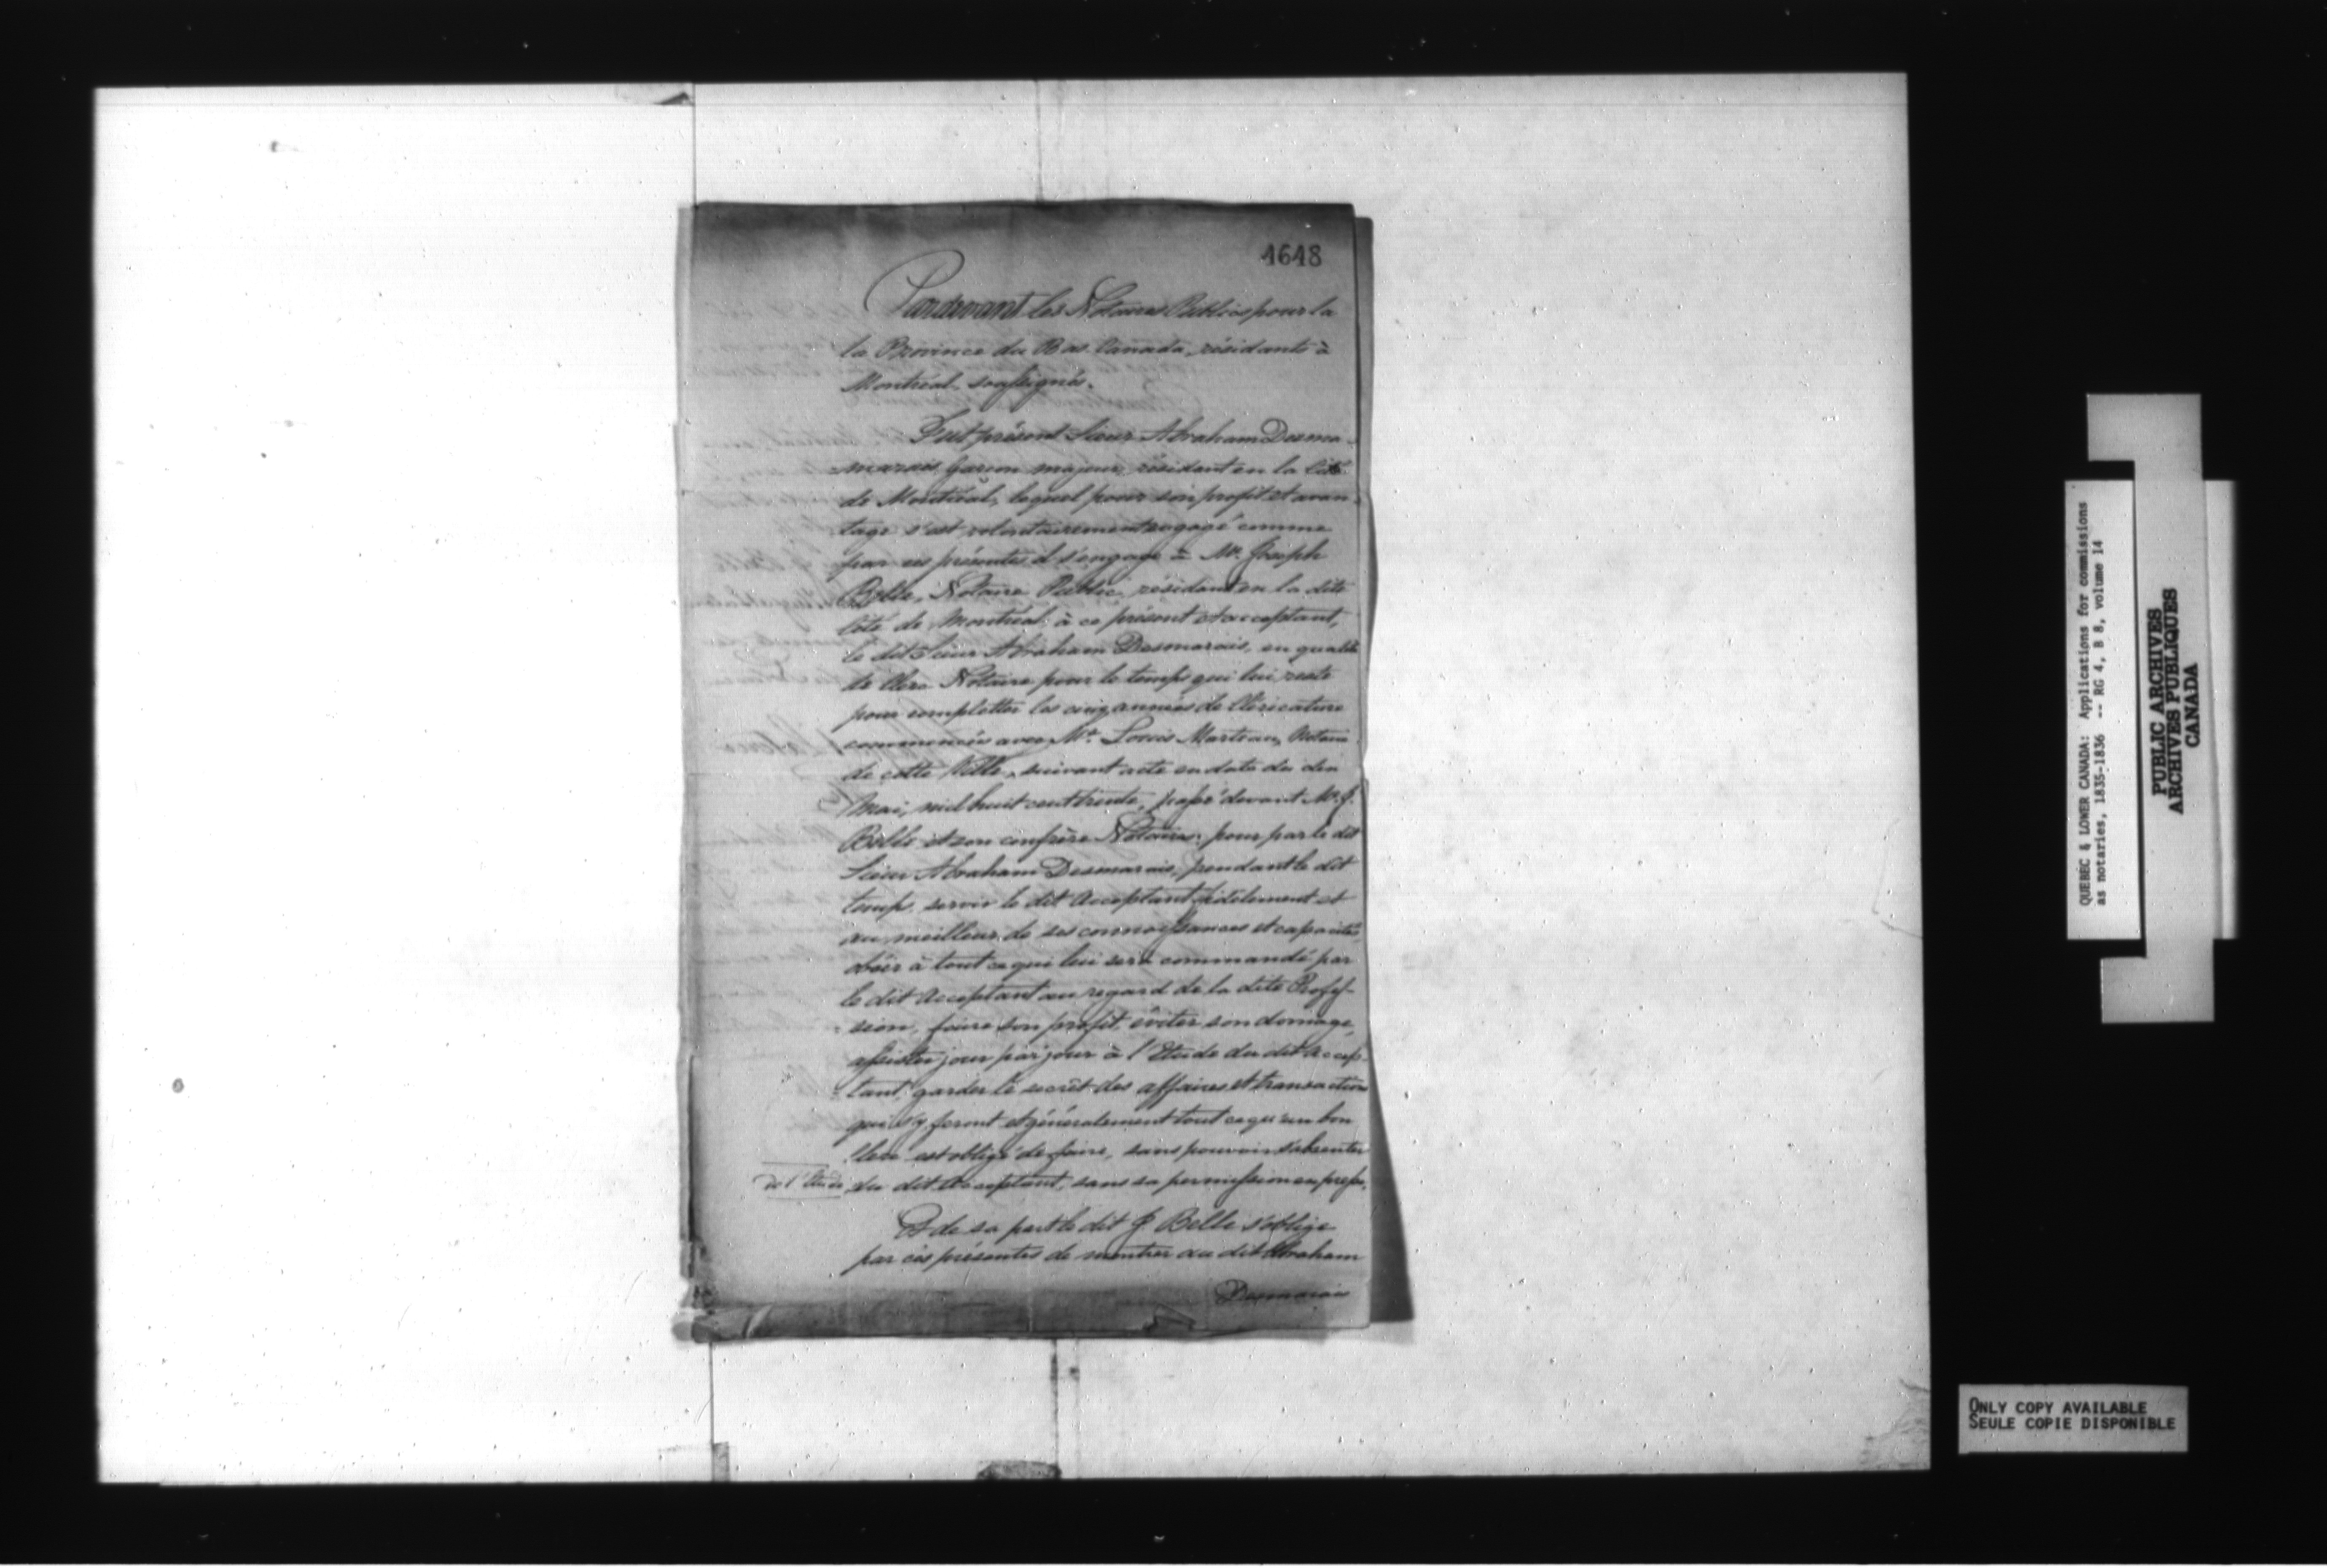 4648
Pardevant les Notaires Publics pour la
la Province du Bas Canada, résidants à
Montréal, soussignés.
Fut présent Sieur Abraham Desma-
marais, Garçon majeur, résidant en la Cité
de Montréal, lequel pour son profit et avan-
tage s'est volontairement engagé comme
par ces présentes il s'engage à Mr. Joseph
Belle, Notaire Public, résidant en la dite
Cité de Montréal, à ce présent et acceptant,
le dit Sieur Abraham Desmarais, en qualité
de Clerc Notaire pour le temps qui lui reste
pour completter les cinq années de Cléricature
commencées avec Mr. Louis Marteau, Notaire
de cette Ville, suivant acte en date du dix
Mai, mil huit cent trente, passé devant Mr. J.
Belle et son confrère Notaires: pour par le dit
Sieur Abraham Desmarais, pendant le dit
temps servir le dit Acceptant fidèlement et
au meilleur de ses connoissances et capacités,
obéir à tout ce qui lui sera commandé par
le dit Acceptant au regard de la dite Profes-
sion, faire son profit, éviter son domage,
assister jour par jour à l'Etude du dit Accep-
tant, garder le secret des affaires et transactions
qui s'y feront et généralement tout ce qu'un bon
Clerc est obligé de faire, sans pouvoir s'absenter
de l'Etude du dit Acceptant, sans sa permission expresse.
Et de sa part le dit J. Belle s'oblige
par ces présentes de montrer au dit Abraham
Desmarais
QUEBEC & LOWER CANADA: Applications for commissions
as notaries, 1835-1836 -- RG 4, B 8, volume 14
PUBLIC ARCHIVES
ARCHIVES PUBLIQUES
CANADA
ONLY COPY AVAILABLE
SEULE COPIE DISPONIBLE